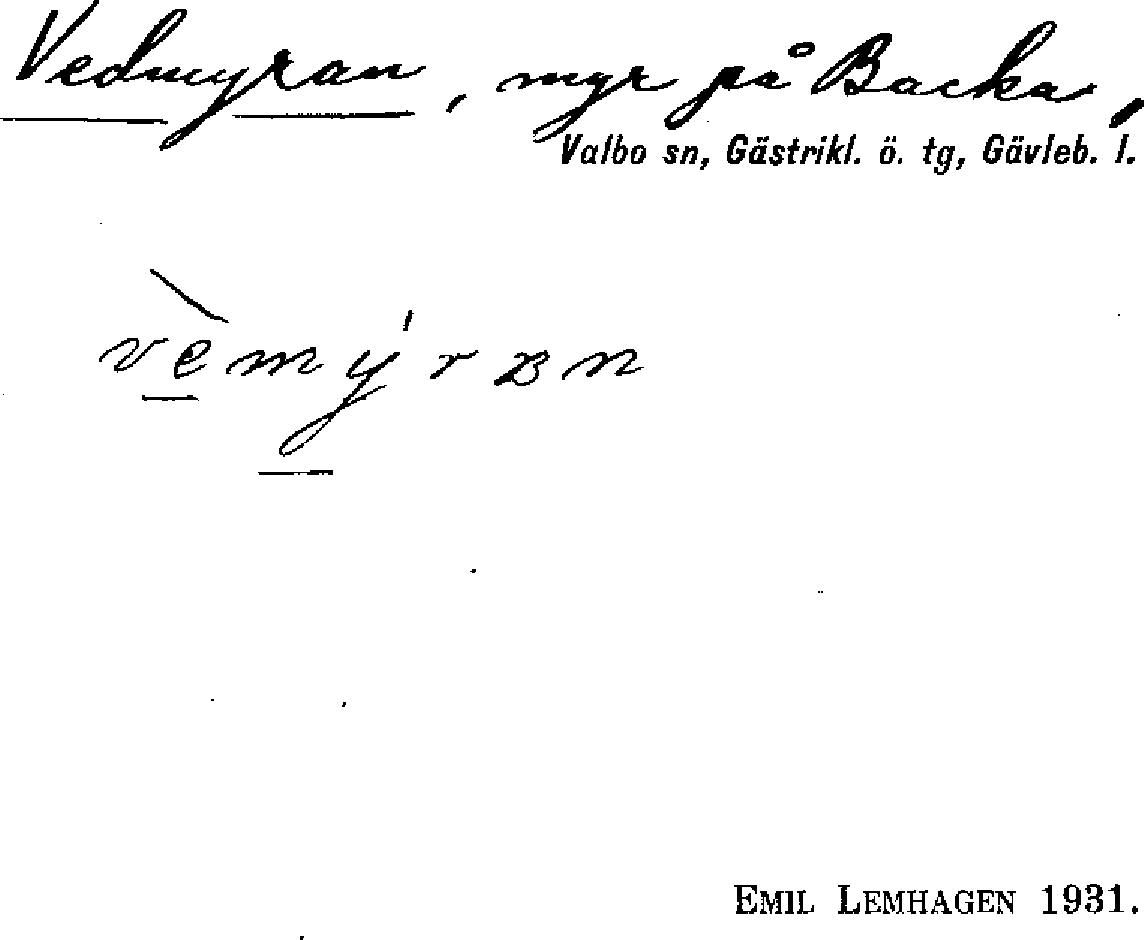 Vedmyran, myr på Backa,
Valbo sn, Gästrikl. ö. tg, Gävleb. l.
vèmýrɐn
EMIL LEMHAGEN 1931.